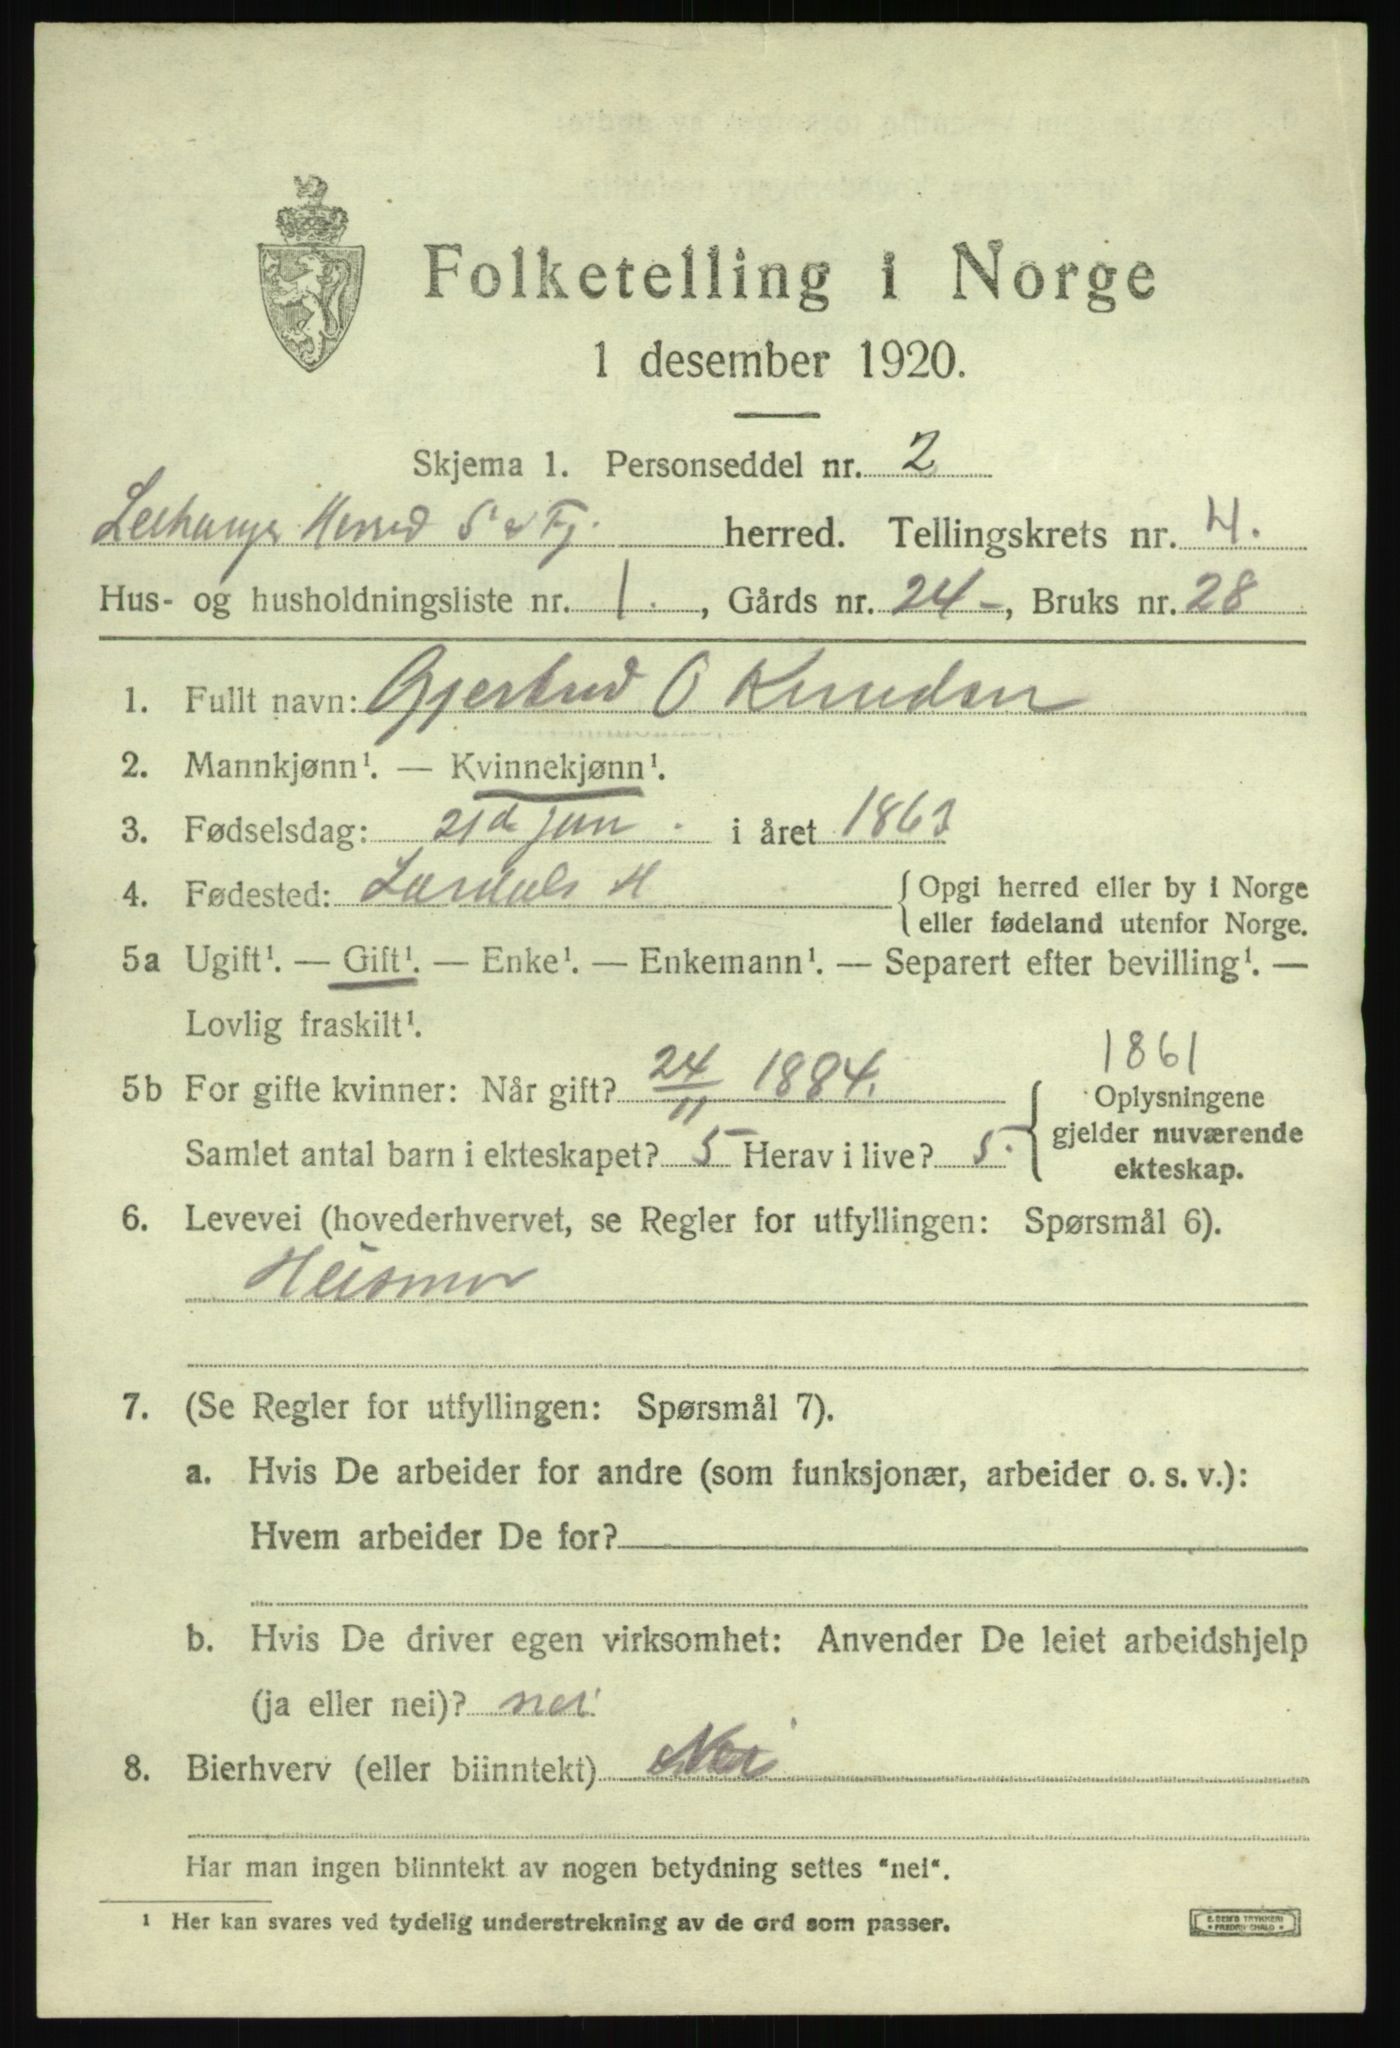 Folketelling i Norge
1 desember 1920.
Skjema 1. Personseddel nr. 2
Herred S & Fj. herred. Tellingskrets nr. 4.
Hus- og husholdningsliste nr. 1. , Gårds nr. 24 -, Bruks nr. 28
1. Fullt navn: Gjertrud O Knudsen
2. Mannkjønn¹. — Kvinnekjønn¹.
3. Fødselsdag: 21de jan. i året 1863
4. Fødested: Lærdals H { Opgi herred eller by i Norge
eller fødeland utenfor Norge.
5a Ugift¹. — Gift¹. — Enke¹. — Enkemann¹. — Separert efter bevilling¹. —
Lovlig fraskilt¹.
1861
5b For gifte kvinner: Når gift? 24/11 1884. Oplysningene
gjelder nuværende
Samlet antal barn i ekteskapet? 5 Herav i live? 5.
ekteskap.
6. Levevei (hovederhvervet, se Regler for utfyllingen: Spørsmål 6).
Heismor
7. (Se Regler for utfyllingen: Spørsmål 7).
a. Hvis De arbeider for andre (som funksjonær, arbeider o. s. v.):
Hvem arbeider De for?
b. Hvis De driver egen virksomhet: Anvender De leiet arbeidshjelp
(ja eller nei)? nei
8. Bierhverv (eller biinntekt) Nei
Har man ingen biinntekt av nogen betydning settes "nei".
¹ Her kan svares ved tydelig understrekning av de ord som passer.